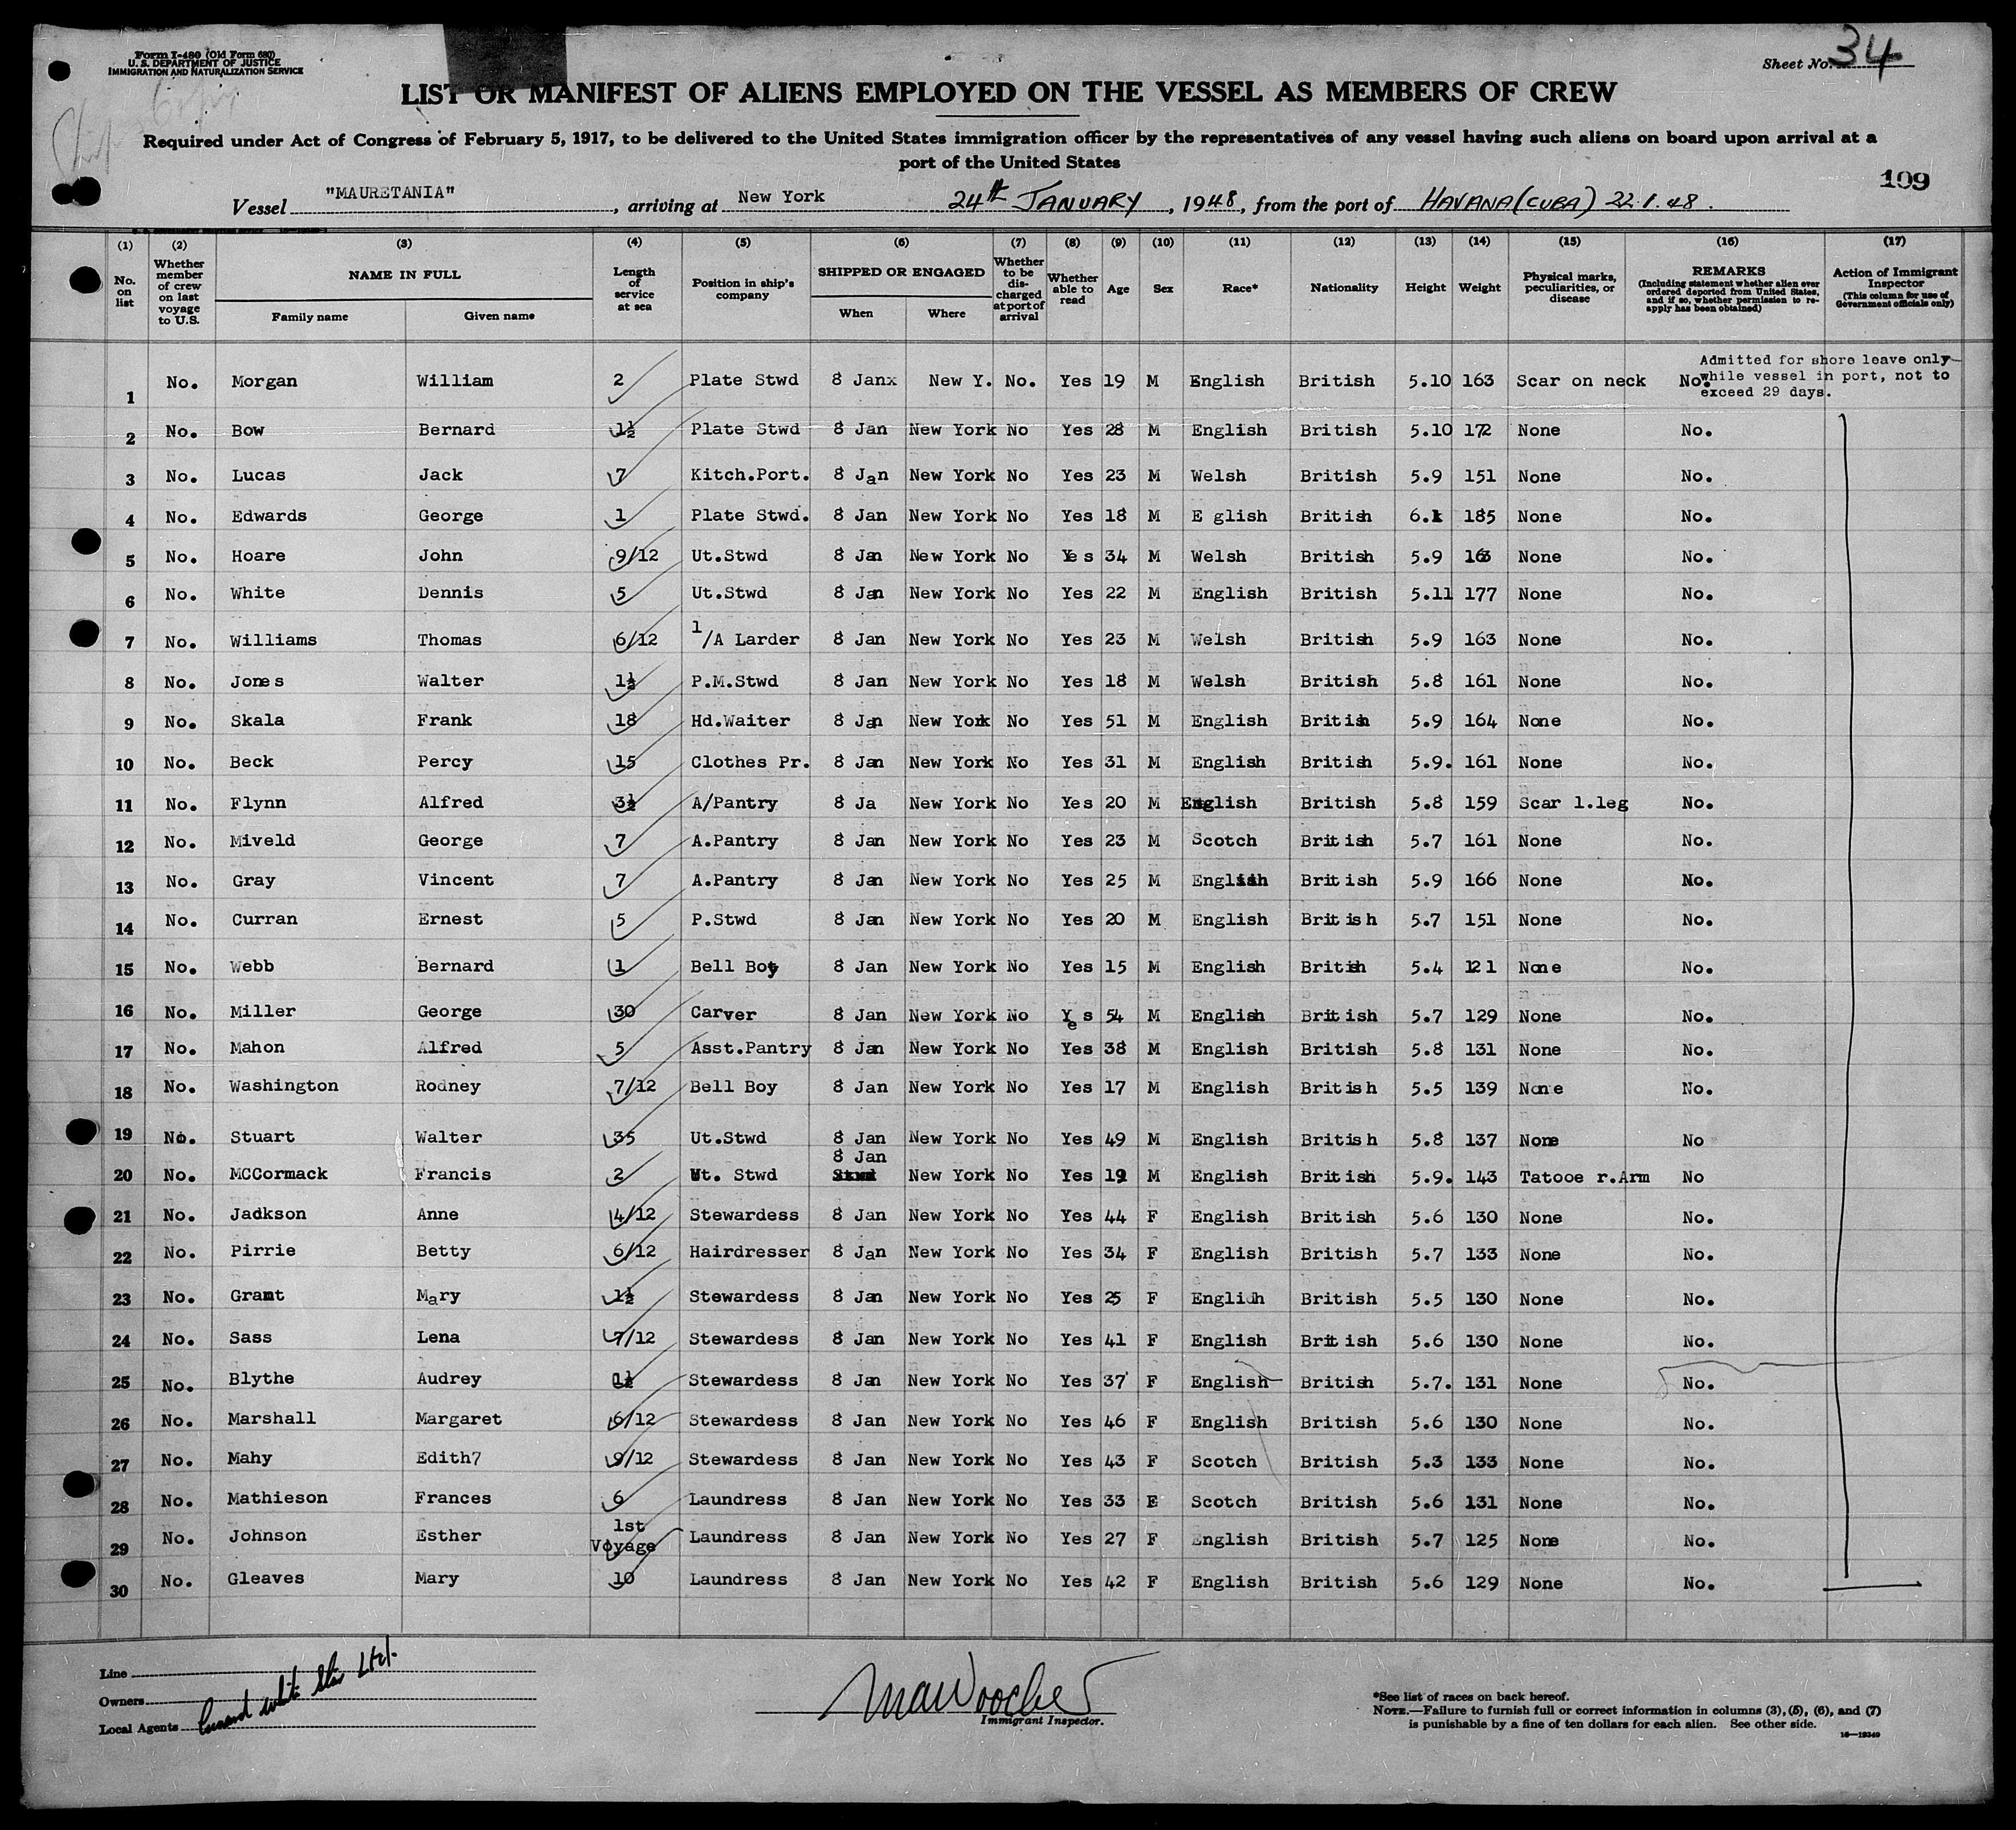 Form I-480 (Old Form 680)
U. S. DEPARTMENT OF JUSTICE
IMMIGRATION AND NATURALIZATION SERVICE
Sheet No. 34
LIST OR MANIFEST OF ALIENS EMPLOYED ON THE VESSEL AS MEMBERS OF CREW
Required under Act of Congress of February 5, 1917, to be delivered to the United States immigration officer by the representatives of any vessel having such aliens on board upon arrival at a
port of the United States
109
Vessel "MAURETANIA", arriving at New York 24th JANUARY, 1948, from the port of HAVANA (CUBA) 22.1.48.
(1) (2) (3) (4) (5) (6) (7) (8) (9) (10) (11) (12) (13) (14) (15) (16) (17)
No. on list Whether member of crew on last voyage to U.S. NAME IN FULL Family name Given name Length of service at sea Position in ship's company SHIPPED OR ENGAGED When Where Whether to be discharged at port of arrival Whether able to read Age Sex Race* Nationality Height Weight Physical marks, peculiarities, or disease REMARKS (Including statement whether alien ever ordered deported from United States, and if so, whether permission to reapply has been obtained) Action of Immigrant Inspector (This column for use of Government officials only)
Admitted for shore leave only while vessel in port, not to exceed 29 days.
1 No. Morgan William 2 Plate Stwd 8 Janx New Y. No. Yes 19 M English British 5.10 163 Scar on neck No.
2 No. Bow Bernard 1½ Plate Stwd 8 Jan New York No Yes 28 M English British 5.10 172 None No.
3 No. Lucas Jack 7 Kitch.Port. 8 Jan New York No Yes 23 M Welsh British 5.9 151 None No.
4 No. Edwards George 1 Plate Stwd. 8 Jan New York No Yes 18 M E glish British 6.1 185 None No.
5 No. Hoare John 9/12 Ut.Stwd 8 Jan New York No Yes 34 M Welsh British 5.9 163 None No.
6 No. White Dennis 5 Ut.Stwd 8 Jan New York No Yes 22 M English British 5.11 177 None No.
7 No. Williams Thomas 6/12 1/A Larder 8 Jan New York No Yes 23 M Welsh British 5.9 163 None No.
8 No. Jones Walter 1½ P.M.Stwd 8 Jan New York No Yes 18 M Welsh British 5.8 161 None No.
9 No. Skala Frank 18 Hd.Waiter 8 Jan New York No Yes 51 M English British 5.9 164 None No.
10 No. Beck Percy 15 Clothes Pr. 8 Jan New York No Yes 31 M English British 5.9. 161 None No.
11 No. Flynn Alfred 3½ A/Pantry 8 Ja New York No Yes 20 M English British 5.8 159 Scar l.leg No.
12 No. Miveld George 7 A.Pantry 8 Jan New York No Yes 23 M Scotch British 5.7 161 None No.
13 No. Gray Vincent 7 A.Pantry 8 Jan New York No Yes 25 M English British 5.9 166 None No.
14 No. Curran Ernest 5 P.Stwd 8 Jan New York No Yes 20 M English British 5.7 151 None No.
15 No. Webb Bernard 1 Bell Boy 8 Jan New York No Yes 15 M English British 5.4 121 None No.
16 No. Miller George 30 Carver 8 Jan New York No Yes 54 M English British 5.7 129 None No.
17 No. Mahon Alfred 5 Asst.Pantry 8 Jan New York No Yes 38 M English British 5.8 131 None No.
18 No. Washington Rodney 7/12 Bell Boy 8 Jan New York No Yes 17 M English British 5.5 139 None No.
19 No. Stuart Walter 35 Ut.Stwd 8 Jan New York No Yes 49 M English British 5.8 137 None No
20 No. MCCormack Francis 2 Ut. Stwd 8 Jan New York No Yes 19 M English British 5.9. 143 Tatooe r.Arm No
21 No. Jadkson Anne 4/12 Stewardess 8 Jan New York No Yes 44 F English British 5.6 130 None No.
22 No. Pirrie Betty 6/12 Hairdresser 8 Jan New York No Yes 34 F English British 5.7 133 None No.
23 No. Grant Mary 1½ Stewardess 8 Jan New York No Yes 25 F English British 5.5 130 None No.
24 No. Sass Lena 7/12 Stewardess 8 Jan New York No Yes 41 F English British 5.6 130 None No.
25 No. Blythe Audrey 1½ Stewardess 8 Jan New York No Yes 37 F English British 5.7. 131 None No.
26 No. Marshall Margaret 6/12 Stewardess 8 Jan New York No Yes 46 F English British 5.6 130 None No.
27 No. Mahy Edith7 9/12 Stewardess 8 Jan New York No Yes 43 F Scotch British 5.3 133 None No.
28 No. Mathieson Frances 6 Laundress 8 Jan New York No Yes 33 F Scotch British 5.6 131 None No.
29 No. Johnson Esther 1st Voyage Laundress 8 Jan New York No Yes 27 F English British 5.7 125 None No.
30 No. Gleaves Mary 10 Laundress 8 Jan New York No Yes 42 F English British 5.6 129 None No.
Line
Owners
Local Agents Cunard White Star Ltd.
Immigrant Inspector.
*See list of races on back hereof.
NOTE.—Failure to furnish full or correct information in columns (3), (5), (6), and (7)
is punishable by a fine of ten dollars for each alien. See other side.
16—19349